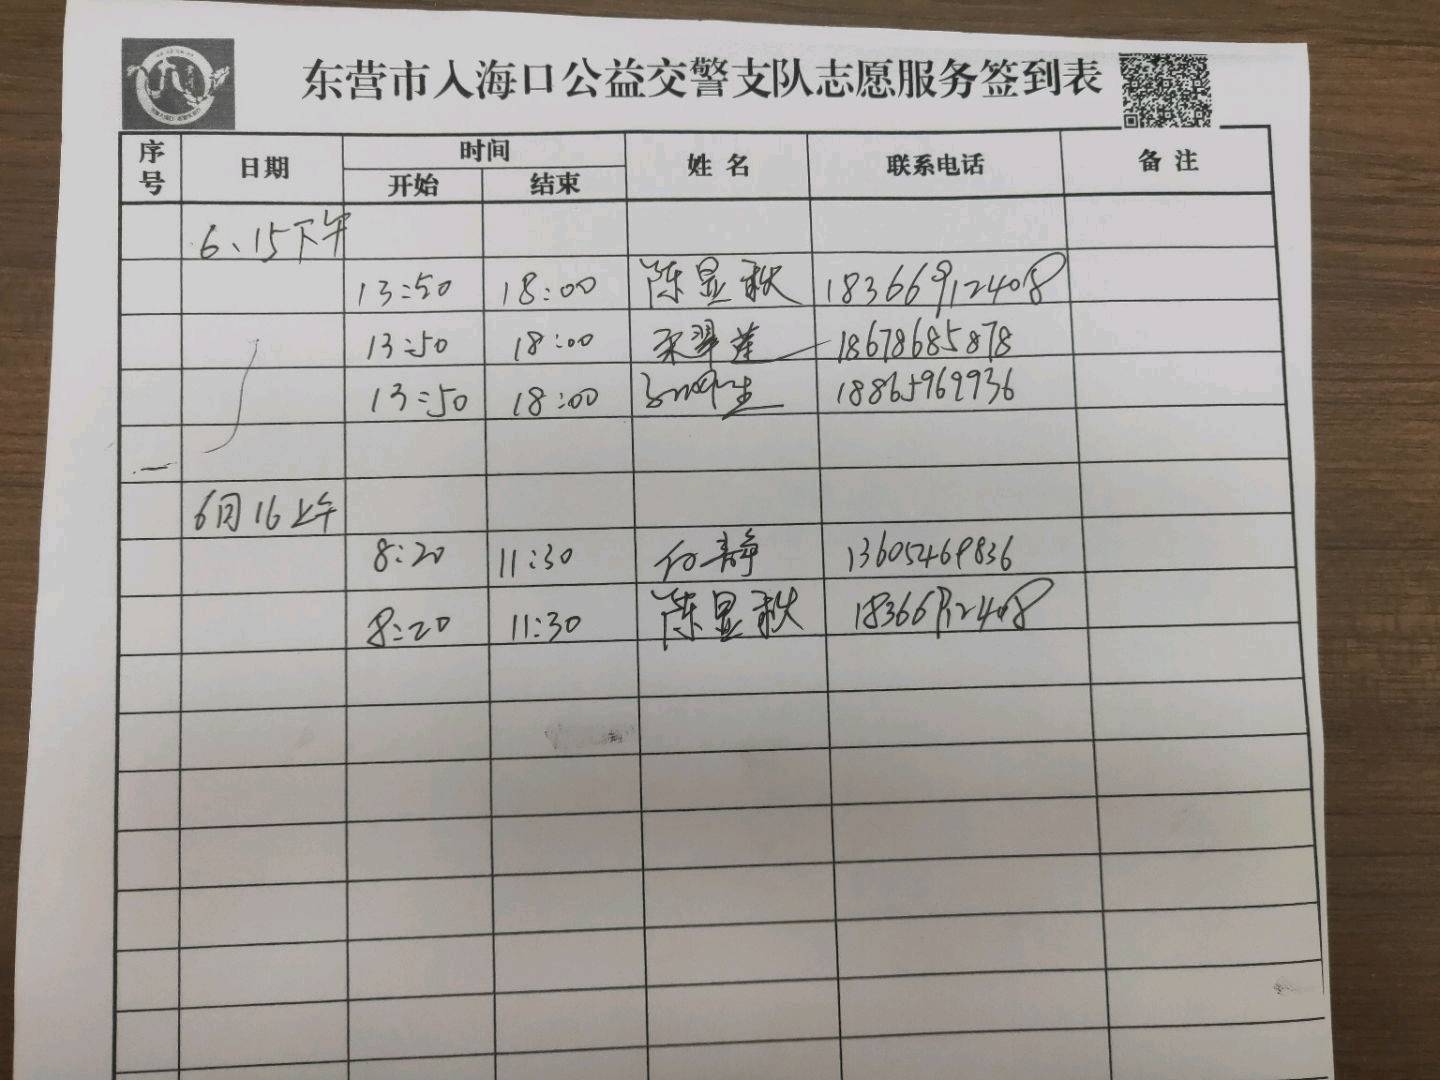 东营市入海口公益交警支队志愿服务签到表
序号 日期 时间 姓名 联系电话 备注
开始 结束
6、15下午
13:50 18:00 陈显秩 18366912408
13:50 18:00 翠莲 18678685878
13:50 18:00 18865969936
6月16上午
8:20 11:30 付静 13605469836
8:20 11:30 陈显秩 18366912408